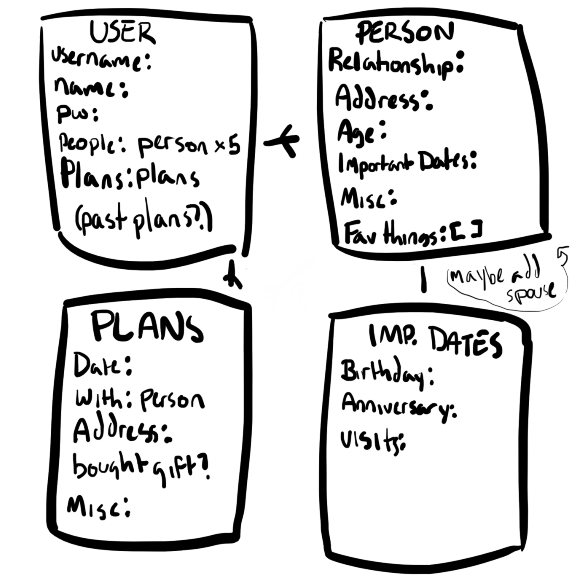 USER
username:
name:
pw:
People: person x5
Plans: plans
(past plans?)
PERSON
Relationship:
Address:
Age:
Important Dates:
Misc:
Fav things: []
maybe add
spouse
PLANS
Date:
With: Person
Address:
bought gift?
Misc:
IMP. DATES
Birthday:
Anniversary:
Visits: